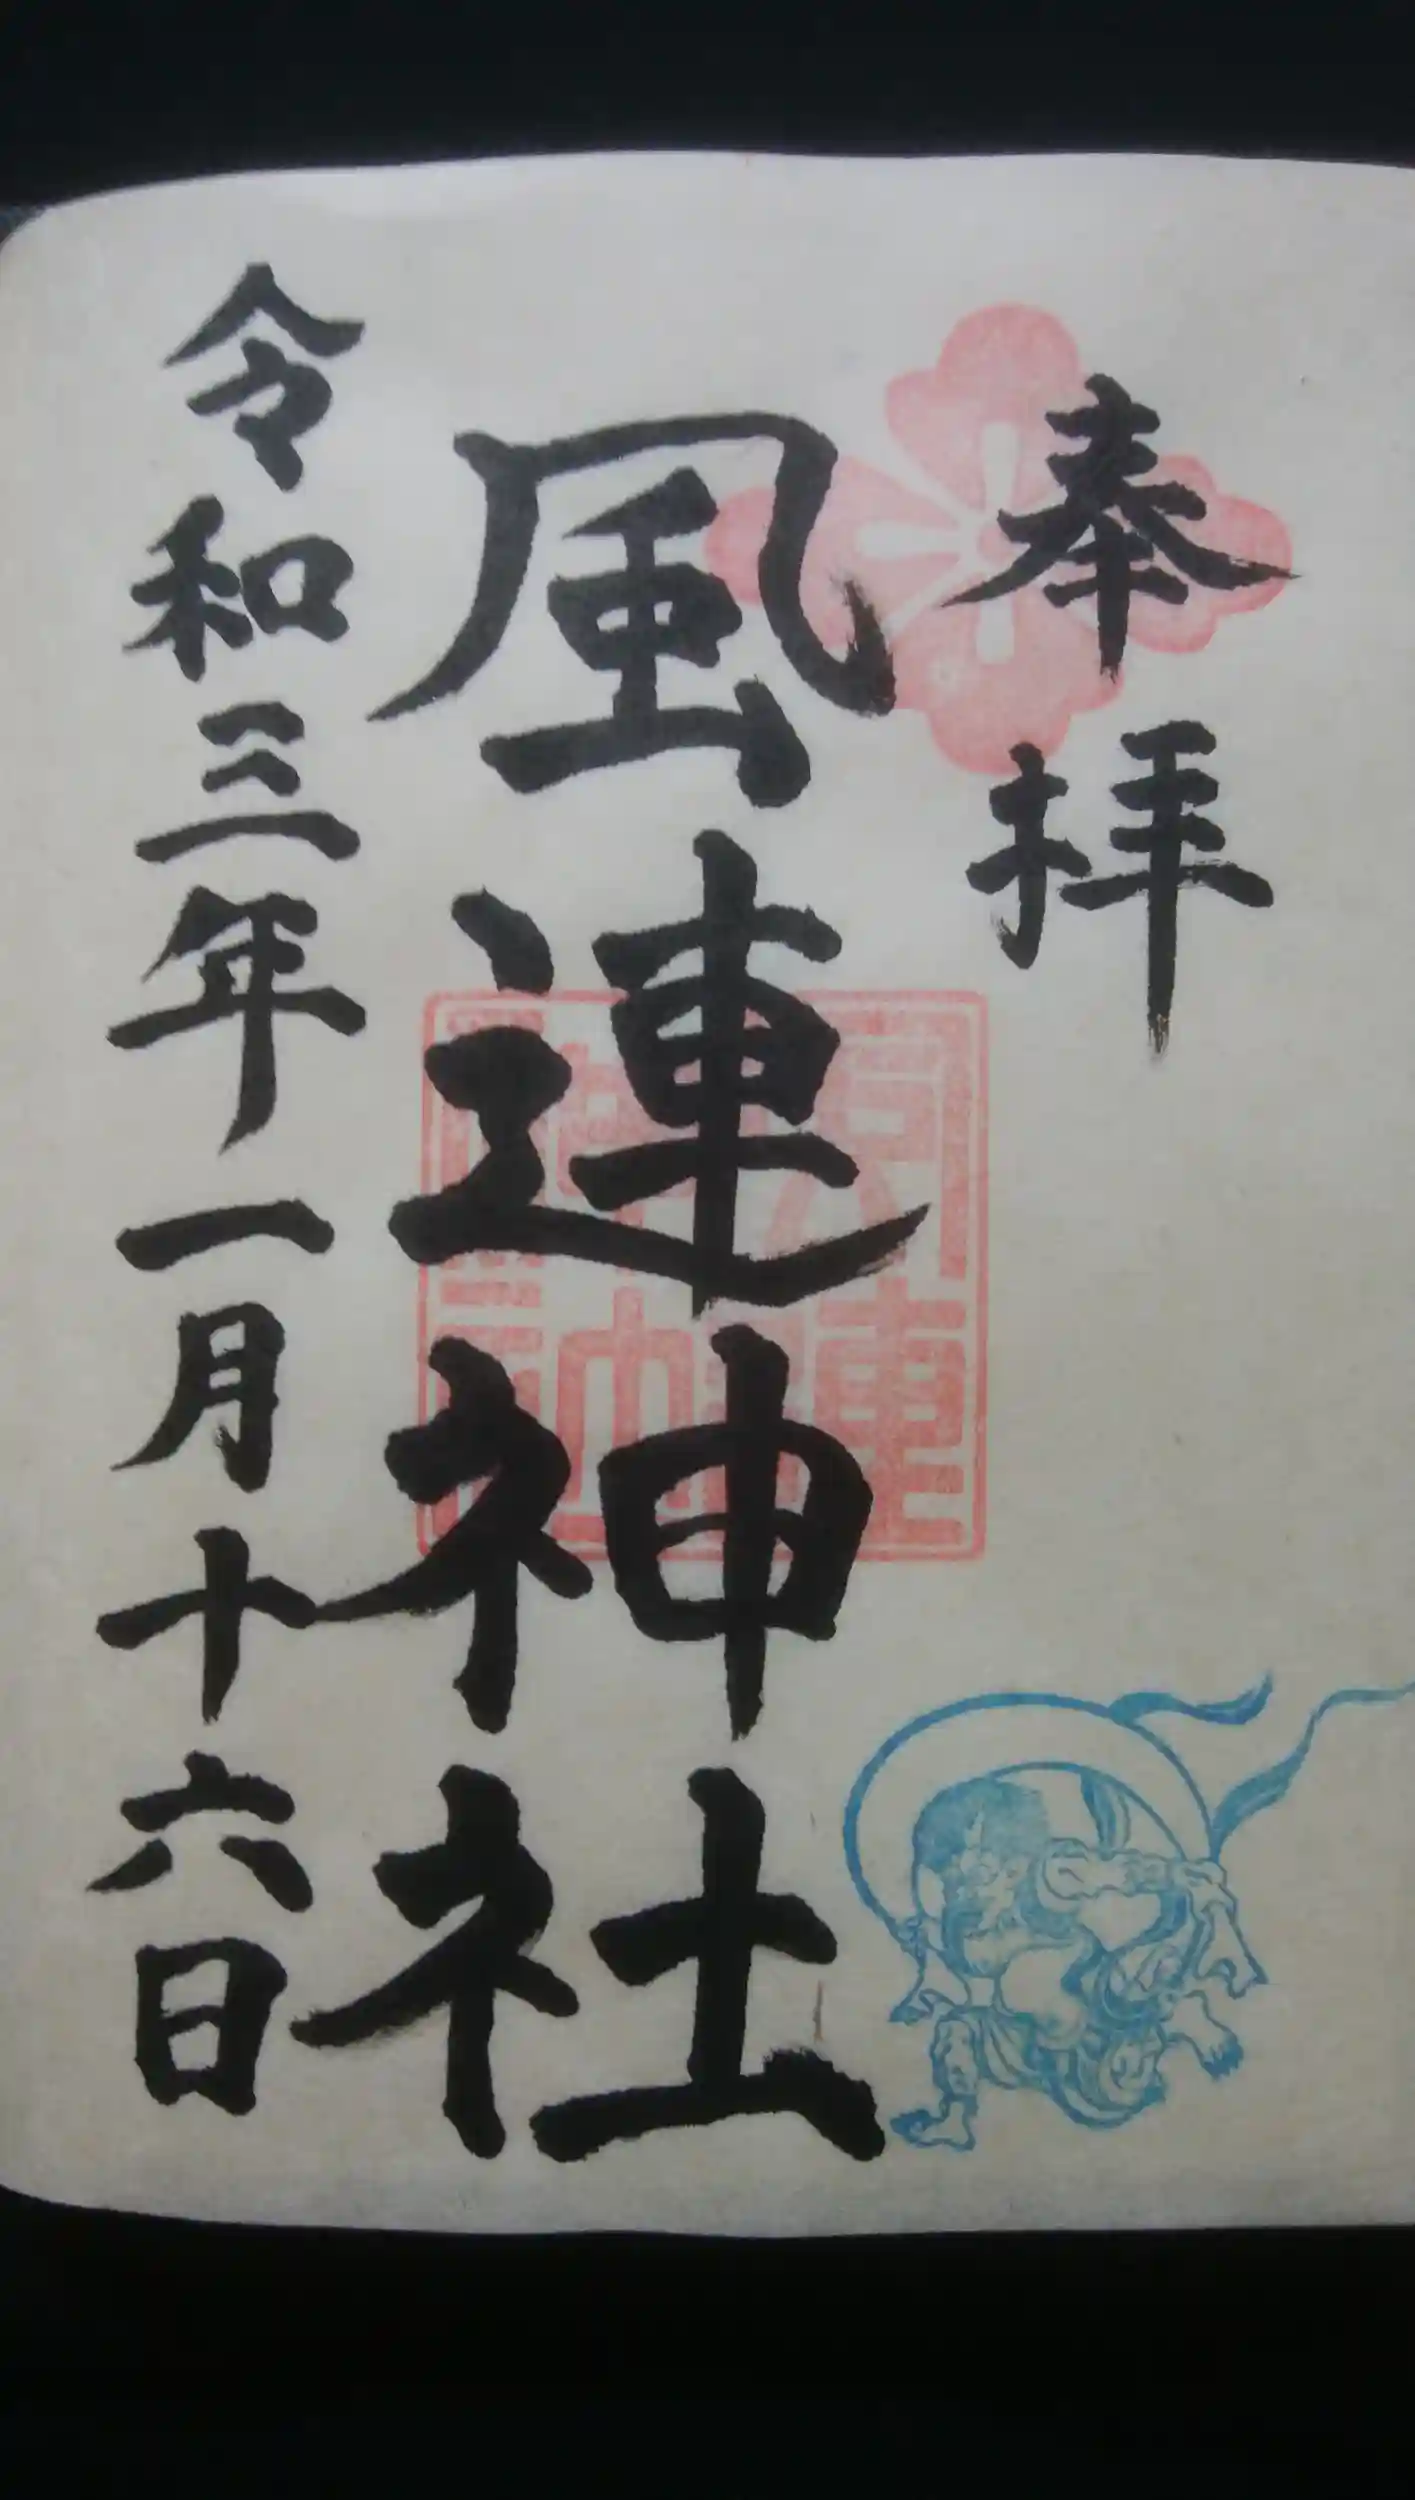 奉拝
風連神社
令和三年一月十六日
風連神社